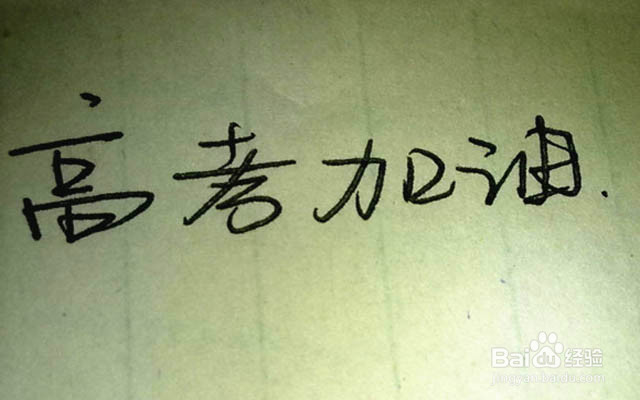 高考加油.
Baidu经验
jingyan.baidu.com